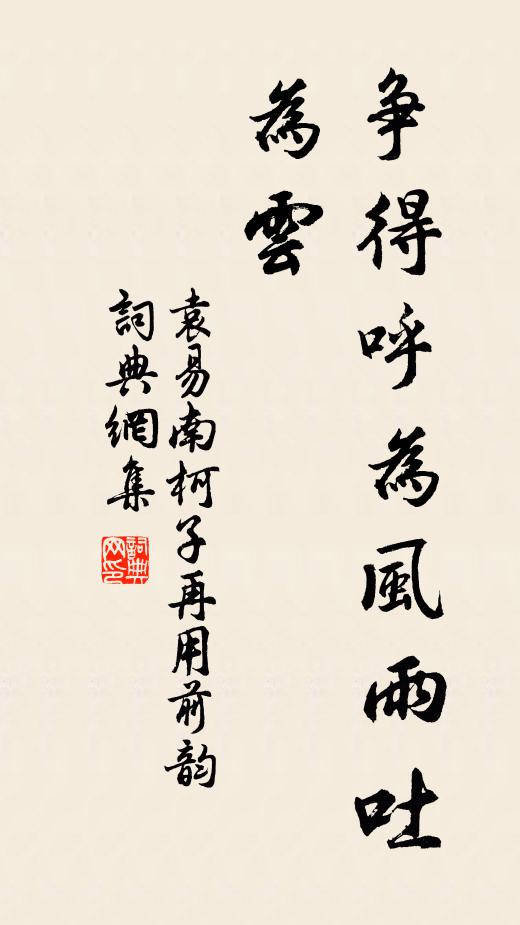 争得呼為風雨吐
為雲
袁易南柯子再用前韵
詞典網集
詞典网印